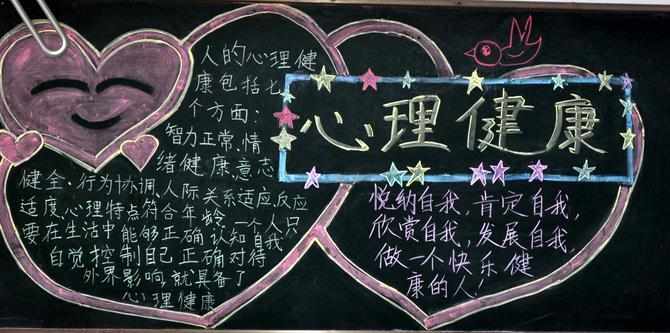 人的心理健
康包括七
个方面:
智力正常,情
绪健康,意志
健全,行为协调,人际关系适应,反应
适度,心理特点符合年龄,一个人只
要在生活中能够正确认知自我
自觉控制自己正确对待
外界影响,就具备了
心理健康
心理健康
悦纳自我,肯定自我,
欣赏自我,发展自我,
做一个快乐健
康的人!